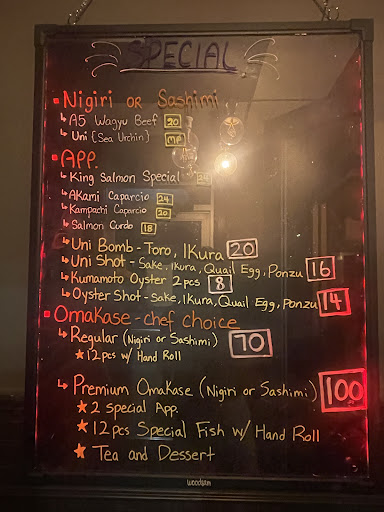 SPECIAL
Nigiri OR Sashimi
A5 Wagyu Beef 20
Uni {Sea Urchin} MP
APP.
King Salmon Special 24
AKami Caparcio 24
Kampachi Caparcio 20
Salmon Curdo 18
Uni Bomb - Toro, IKura 20
Uni Shot - Sake, Ikura, Quail Egg, Ponzu 16
Kumamoto Oyster 2pcs 8
Oyster Shot - Sake, IKura, Quail Egg, Ponzu 14
Omakase - chef choice
Regular (Nigiri or Sashimi) 70
★ 12pcs w/ Hand Roll
Premium Omakase (Nigiri or Sashimi) 100
★ 2 Special App.
★ 12 pcs Special Fish w/ Hand Roll
★ Tea and Dessert
woodsam